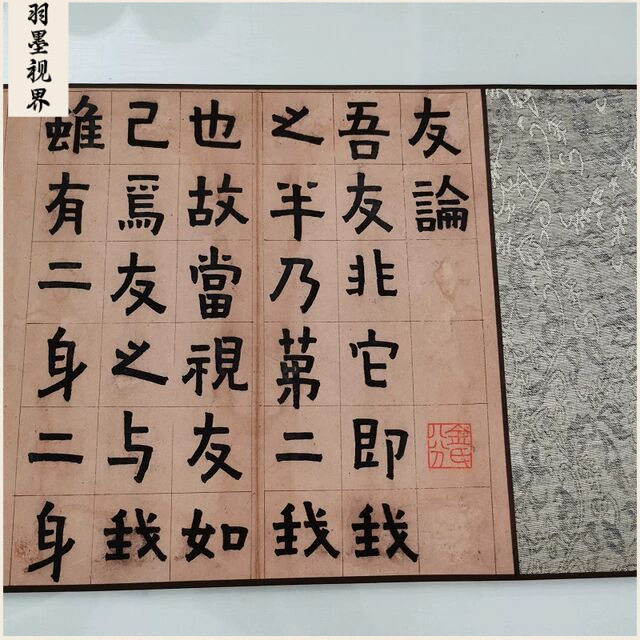 羽墨视界
友論
吾友非它即我
之半乃苐二我
也故當視友如
己焉友之与我
雖有二身二身
金氏八分